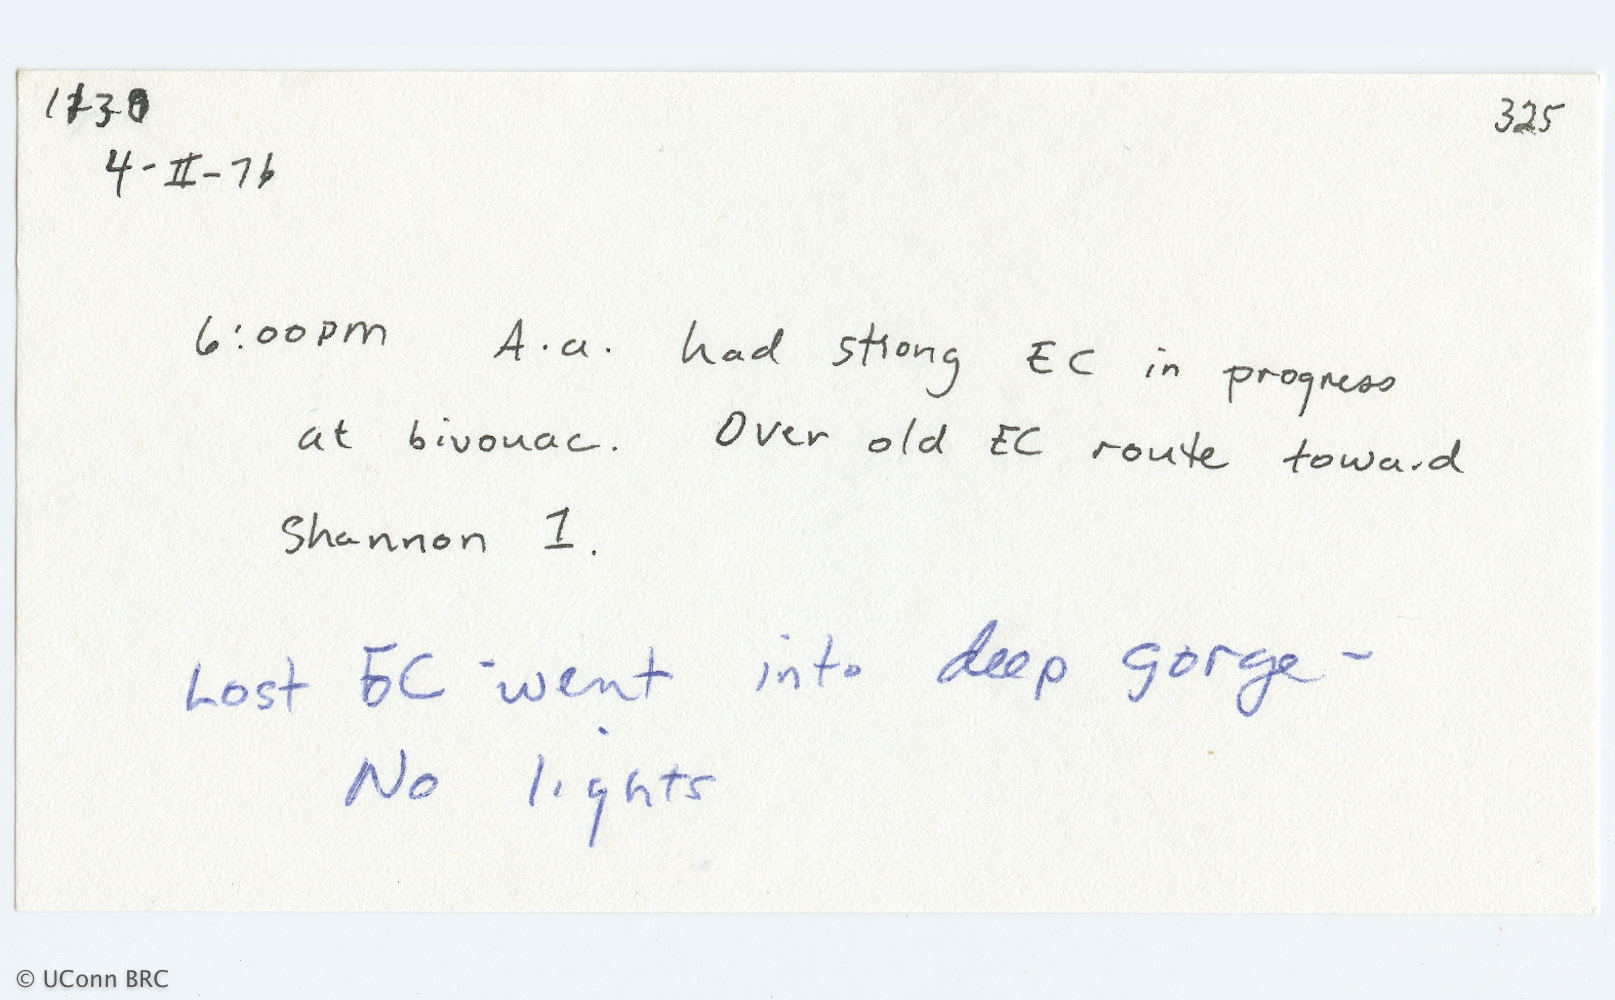 325
4-II-76
6:00pm A.a. had strong EC in progress
at bivouac. Over old EC route toward
Shannon I.
Lost EC - went into deep gorge -
No lights
© UConn BRC